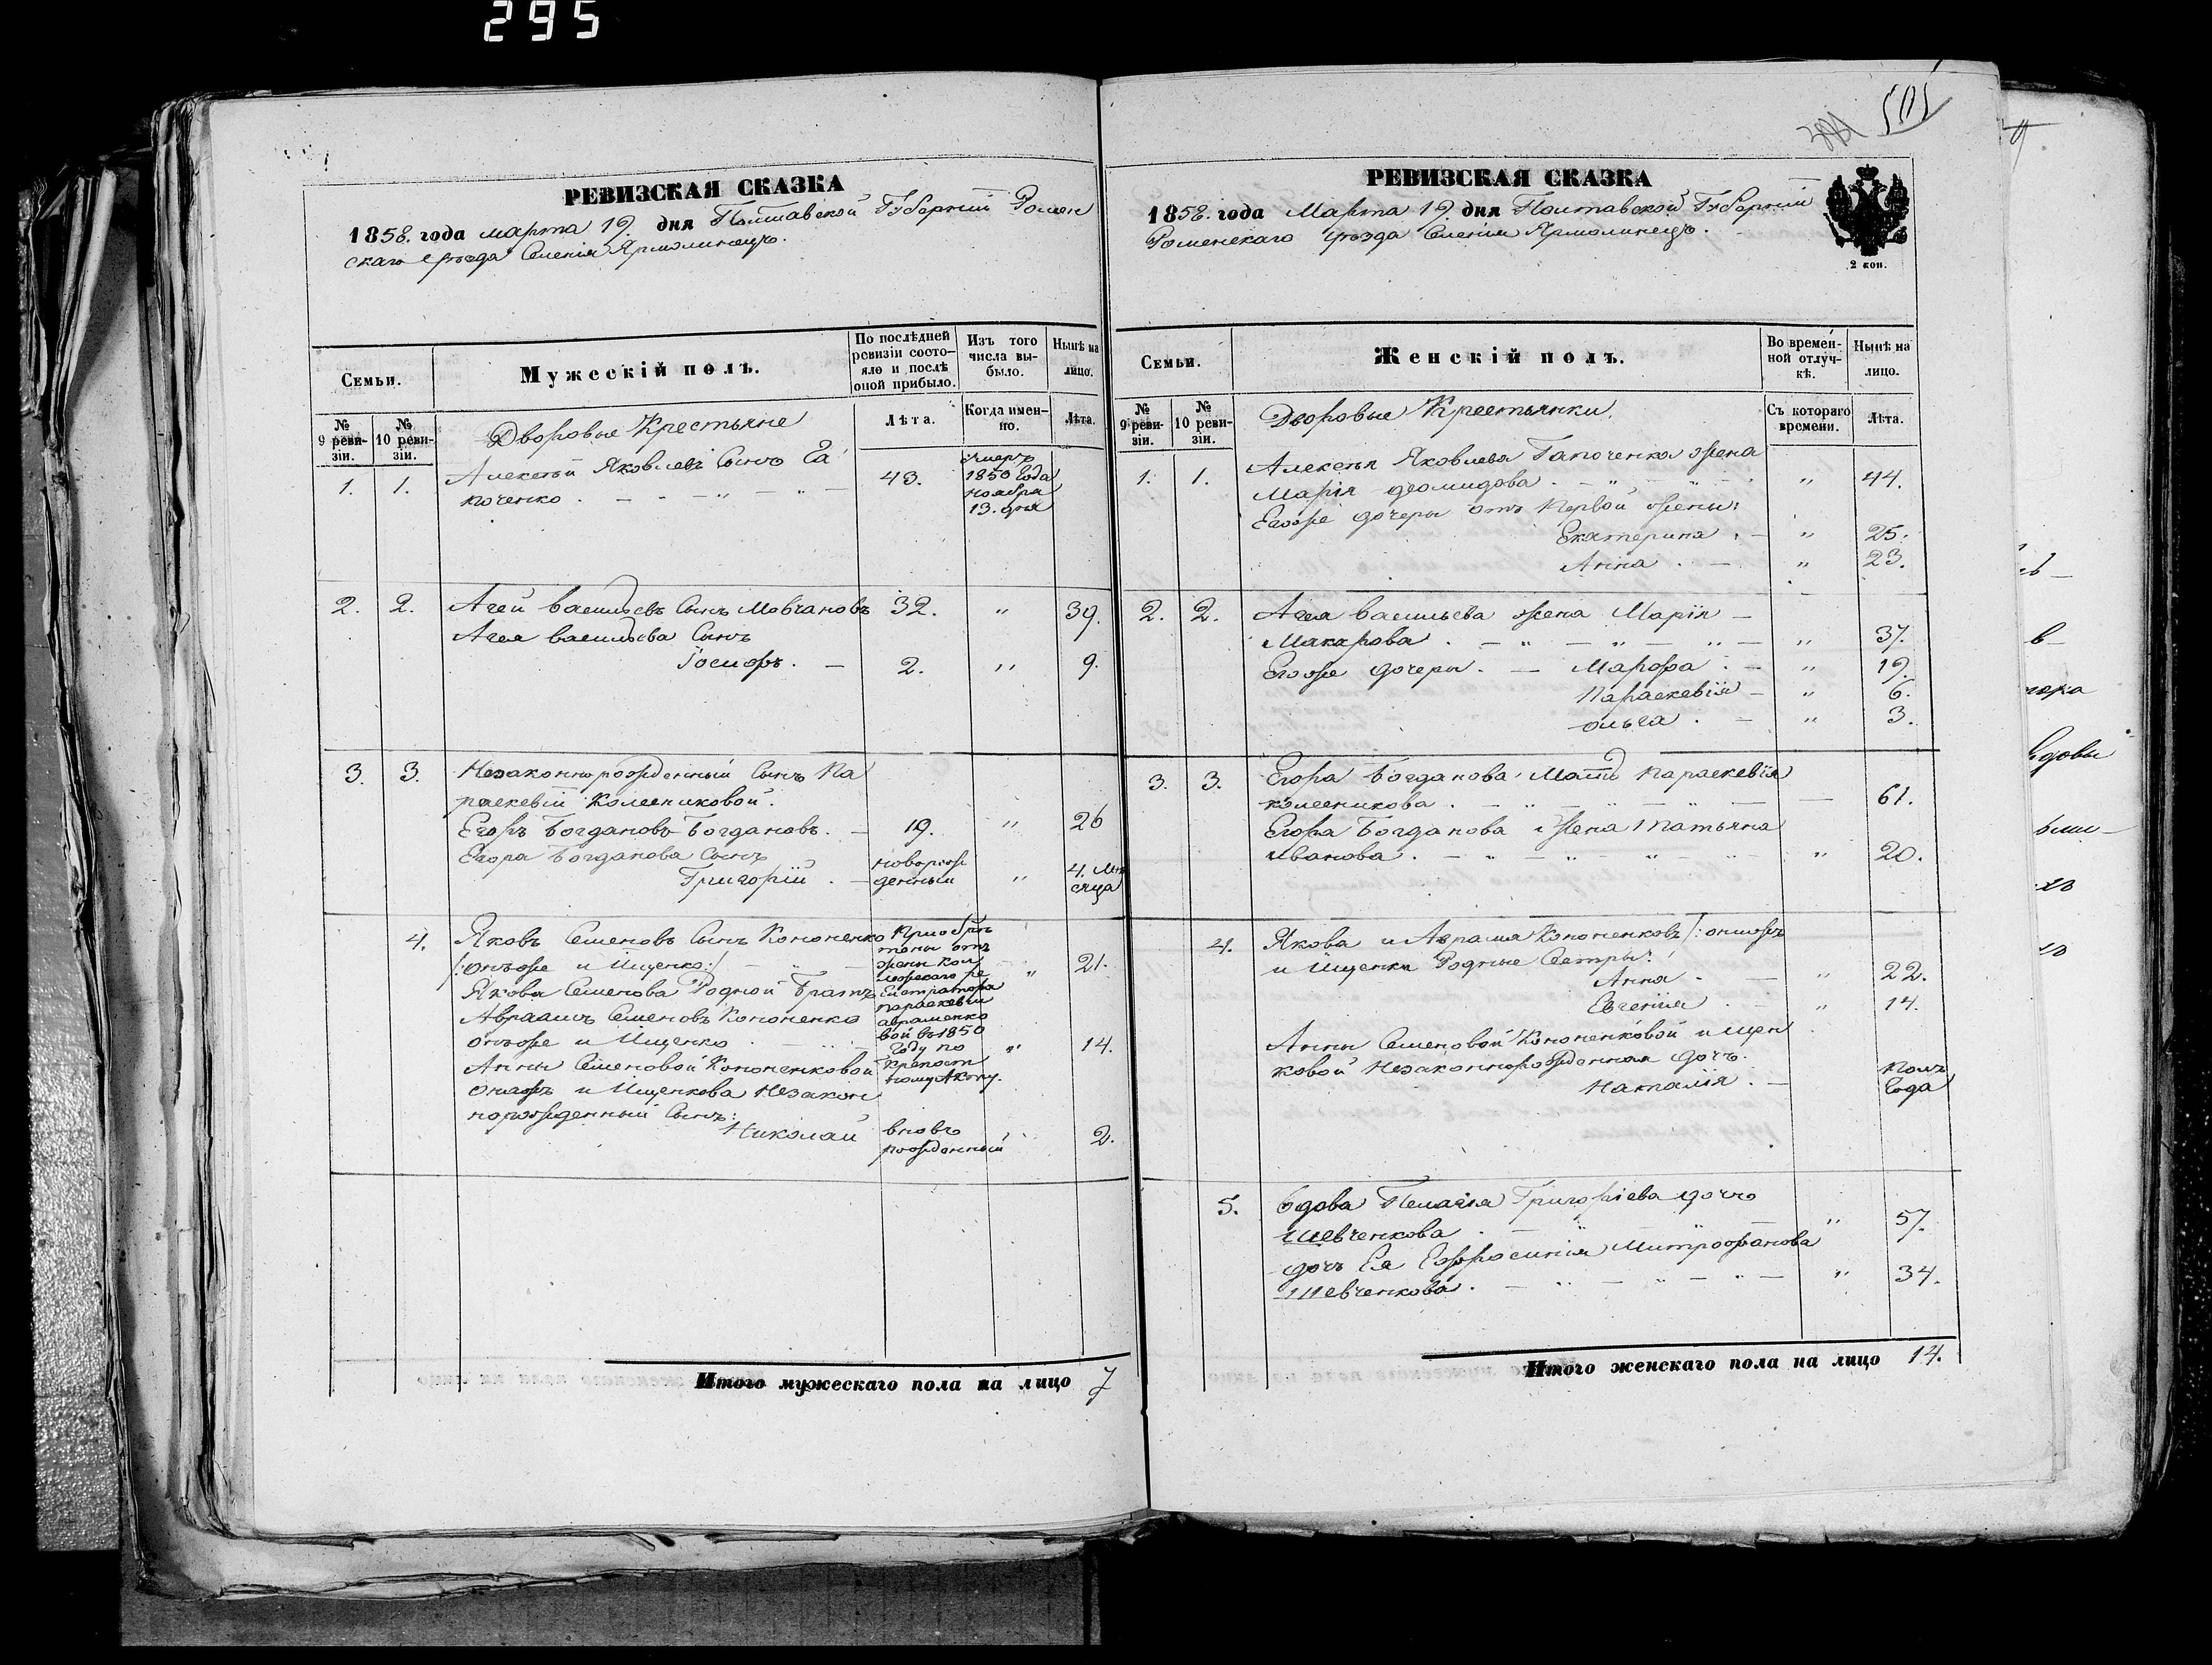 295
501
РЕВИЗСКАЯ СКАЗКА
1858. года марта 19. дня Полтавской Губерніи Ромен
скаго Уѣзда Селенія Ярмолинецъ.
Семьи.
Мужескій полъ.
По послѣдней ревизіи состояло и послѣ оной прибыло.
Изъ того числа выбыло.
Нынѣ на лицо.
№ 9 ревизіи.
№ 10 ревизіи.
Лѣта.
Когда именно.
Лѣта.
Дворовые Крестьяне
1. 1. Алексѣй Яковлевъ Сынъ Га
поченко . 43. умеръ 1850 Года Ноября 13. дня
2. 2. Агей Васильевъ Сынъ Мовчановъ 32. " 39.
Агея Васильева Сынъ
Іосифъ . — 2. " 9.
3. 3. Незаконнорожденный Сынъ Па
раскевіи Колесниковой.
Егоръ Богдановъ Богдановъ. — 19. " 26
Егора Богданова Сынъ
Григорій . — новорож
денный " 4. мѣ
сяца
4. Яковъ Семеновъ Сынъ Кононенко
/:онъже и Ищенко:/ — " 21.
Якова Семенова Родной Братъ
Авраамъ Семеновъ Кононенко
онъже и Ищенко " 14.
Приобрѣ
тены отъ
жены Кол
лежскаго Ре
гистратора
Параскевіи
Авраменко
вой въ 1850
Году по
Крепост
ному Акту.
Анны Семеновой Кононенковой
онажъ и Ищенкова Незакон
норожденный Сынъ:
Николай вновь
рожденный 2.
Итого мужескаго пола на лицо 7
РЕВИЗСКАЯ СКАЗКА
1858. года Марта 19. дня Полтавской Губерніи
Роменскаго Уѣзда Селенія Ярмолинецъ.
2 коп.
Семьи.
Женскій полъ.
Во временной отлучкѣ.
Нынѣ на лицо.
№ 9 ревизіи.
№ 10 ревизіи.
Съ котораго времени.
Лѣта.
Дворовые Крестьянки.
1. 1. Алексѣя Яковлева Гапоченка жена
Марія Діомидова . — " 44.
Егоже дочери отъ Первой жены:
Екатерина . — " 25.
Анна . — " 23.
2. 2. Агея Васильева жена Марія —
Макарова . — " — " — " 37.
Егоже дочери . — Марфа . — " 19.
Параскевія — " 6.
Ольга . — " 3.
3. 3. Егора Богданова Мать Параскевія
Колесникова . — " — " — 61.
Егора Богданова Жена Татьяна
Иванова . — " — " 20.
4. Якова и Аврама Кононенковъ /:онижъ
и Ищенки Родные Сестры:
Анна . — " 22.
Евгенія . " 14.
Анны Семеновой Кононенковой и Ищен
ковой Незаконнорожденная дочъ.
Наталія . — Полъ
Года
5. Вдова Пелагія Григоріева дочь
Шевченкова . — " 57.
дочъ Ея Ефросинія Митрофанова
Шевченкова . — " — " — " 34.
Итого женскаго пола на лицо 14.